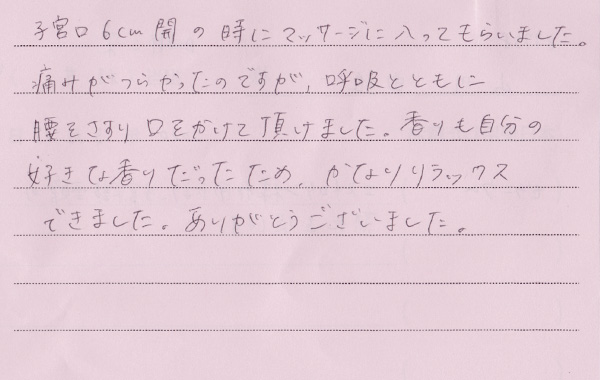 子宮口6cm開の時にマッサージに入ってもらいました。
痛みがつらかったのですが、呼吸とともに
腰をさすり口をかけて頂けました。香りも自分の
好きな香りだったため、かなりリラックス
できました。ありがとうございました。